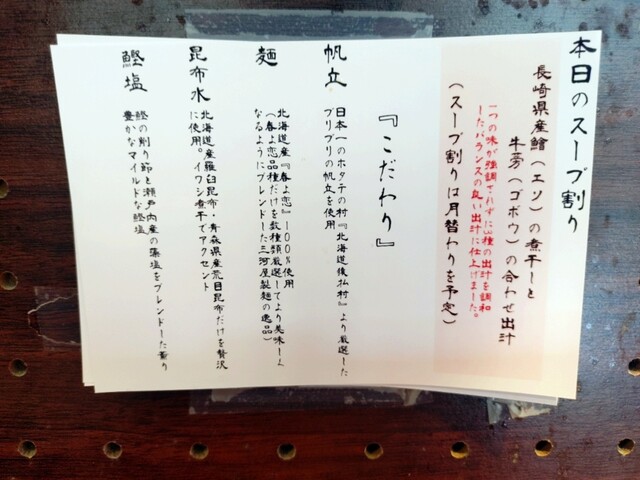 本日のスープ割り
長崎県産鱠（エソ）の煮干しと
牛蒡（ゴボウ）の合わせ出汁
一つの味が強調されずに3種の出汁を調和
したバランスの良い出汁に仕上げました。
（スープ割りは月替わりを予定）
『こだわり』
帆立
日本一のホタテの村『北海道猿払村』より厳選した
プリプリの帆立を使用
麺
北海道産『春よ恋』100%使用
（春よ恋品種だけを数種類厳選してより美味しく
なるようにブレンドした三河屋製麺の逸品）
昆布水
北海道産羅臼昆布・青森県産荒目昆布だけを贅沢
に使用。イワシ煮干でアクセント
鰹塩
鰹の削り節と瀬戸内産の藻塩をブレンドした香り
豊かなマイルドな鰹塩